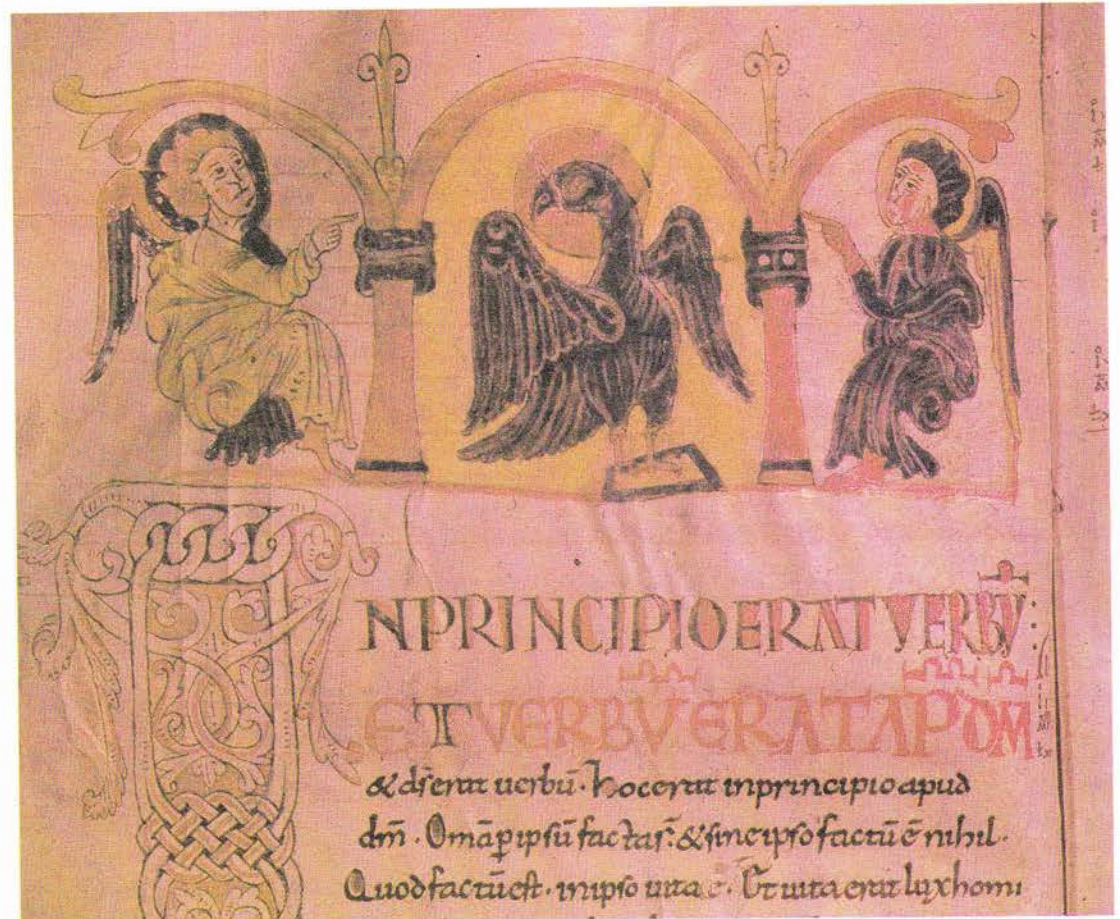 INPRINCIPIO ERAT VERBŪ
ET VERBŪ ERAT AP DM̄
& ds̄ erat uerbū · hoc erat inprincipio apud
dm̄ · Omā ꝑ ipsū facta s̄ · & sine ipso factū ē nihil ·
Quod factū est · inipso uita e · Et uita erat lux homi